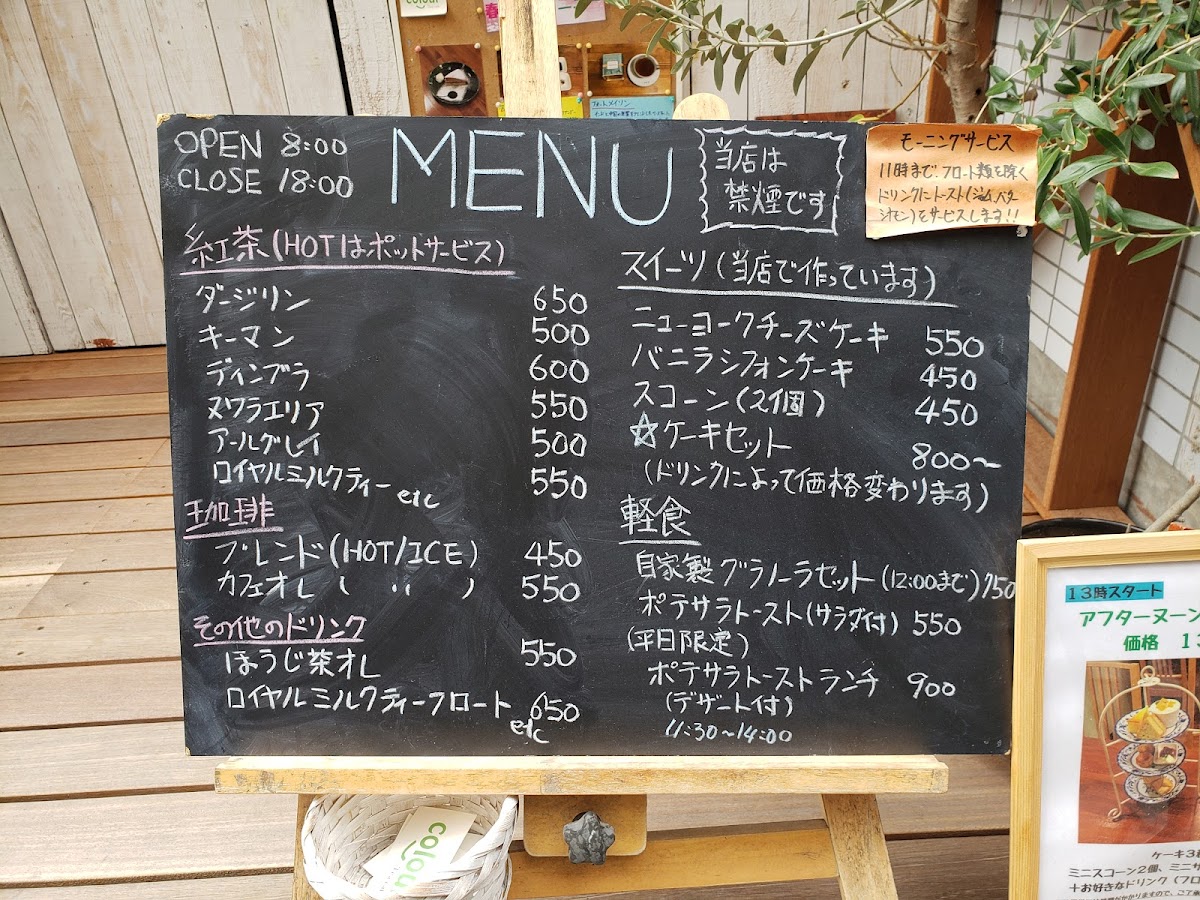 OPEN 8:00
CLOSE 18:00
MENU
当店は
禁煙です
モーニングサービス
11時まで、フロート類を除く
ドリンクにトースト(ジャム、バター
シナモン)をサービスします!!
紅茶(HOTはポットサービス)
ダージリン 650
キーマン 500
ディンブラ 600
ヌワラエリア 550
アールグレイ 500
ロイヤルミルクティー etc 550
珈琲
ブレンド(HOT/ICE) 450
カフェオレ ( 〃 ) 550
その他のドリンク
ほうじ茶オレ 550
ロイヤルミルクティーフロート 650
etc
スイーツ(当店で作っています)
ニューヨークチーズケーキ 550
バニラシフォンケーキ 450
スコーン(2個) 450
☆ケーキセット 800〜
(ドリンクによって価格変わります)
軽食
自家製グラノーラセット(12:00まで) 750
ポテサラトースト(サラダ付) 550
(平日限定)
ポテサラトーストランチ 900
(デザート付)
11:30〜14:00
colour
13時スタート
アフターヌーン
価格 1
ケーキ3
ミニスコーン2個、ミニサ
+お好きなドリンク(フロ